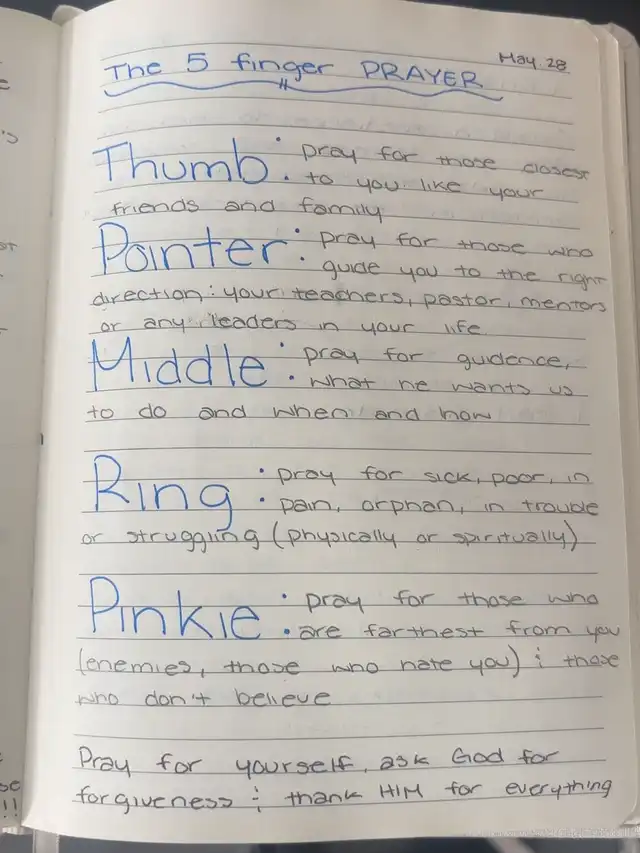 May. 28
The 5 finger PRAYER
Thumb: pray for those closest
to you like your
friends and family
Pointer: pray for those who
guide you to the right
direction: your teachers, pastor, mentors
or any leaders in your life
Middle: pray for guidence,
what he wants us
to do and when and how
Ring: pray for sick, poor, in
pain, orphan, in trouble
or struggling (physically or spiritually)
Pinkie: pray for those who
are farthest from you
(enemies, those who hate you) & those
who don't believe
Pray for yourself, ask God for
forgiveness & thank HIM for everything